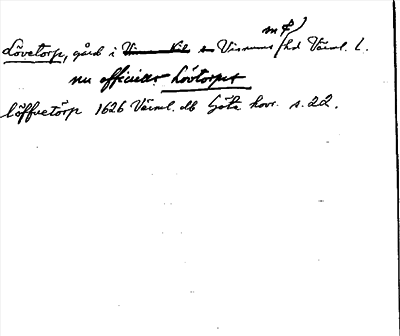 m fl
Lövetorp, gård i Visnums hd Värml. l.
nu officiellt Lövtorpet
löffuetörp 1626 Värml. db Göta hovr. s. 22.